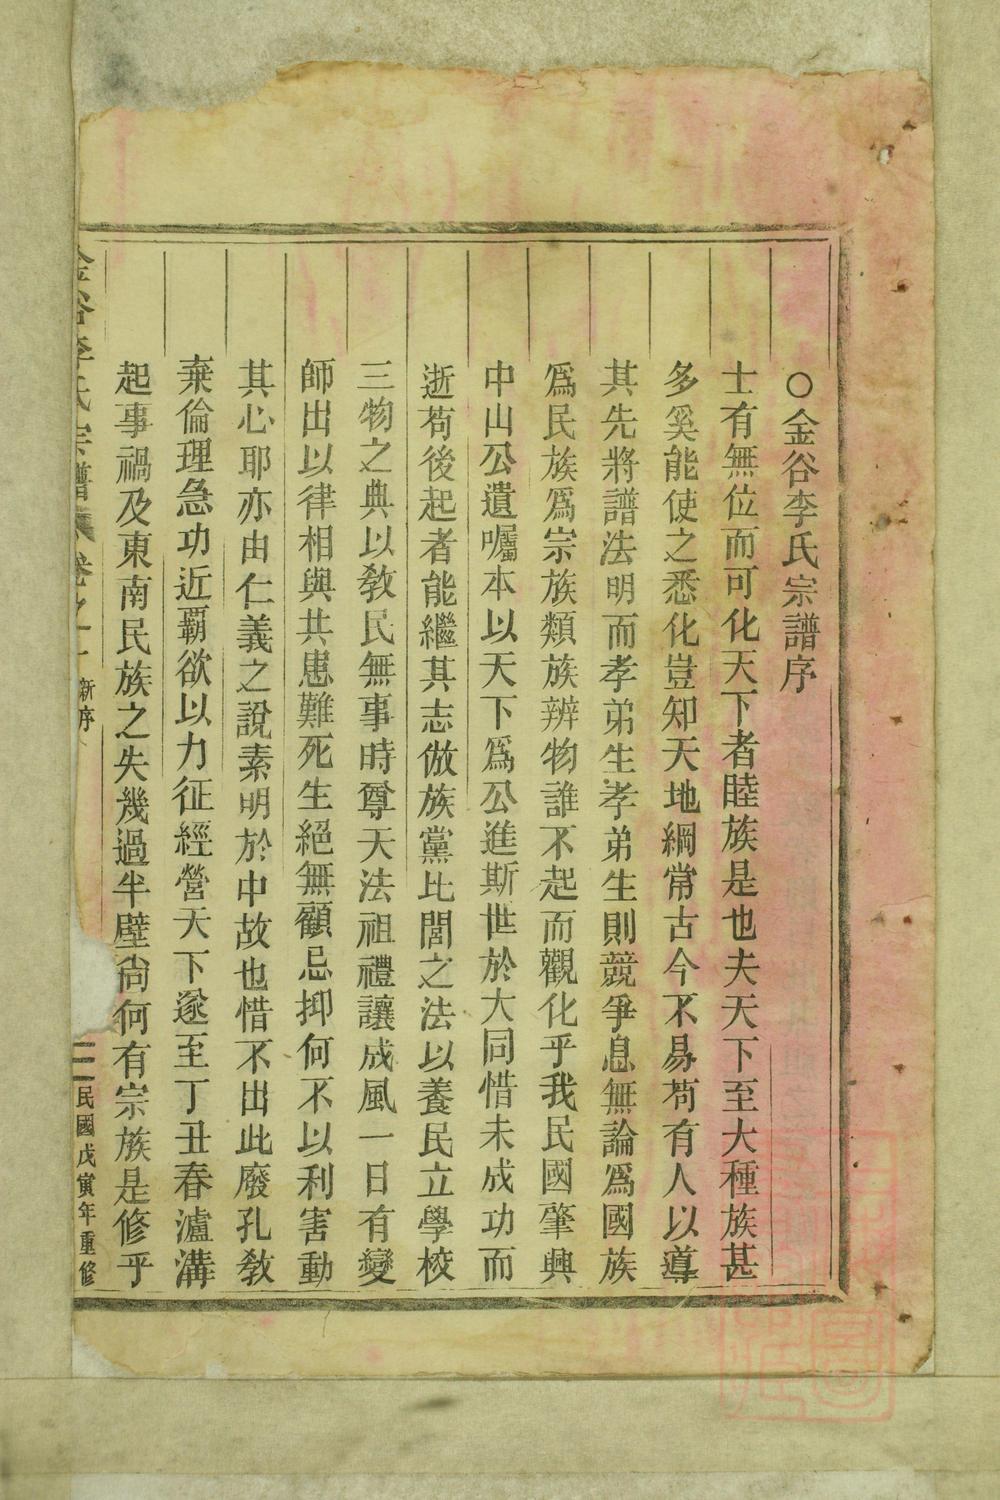 ○金谷李氏宗譜序
士有無位而可化天下者睦族是也夫天下至大種族甚
多奚能使之悉化豈知天地綱常古今不易苟有人以導
其先將譜法明而孝弟生孝弟生則競爭息無論爲國族
爲民族爲宗族類族辨物誰不起而觀化乎我民國肇興
中山公遺囑本以天下爲公進斯世於大同惜未成功而
逝苟後起者能繼其志倣族黨比閭之法以養民立學校
三物之典以敎民無事時尊天法祖禮讓成風一日有變
師出以律相與共患難死生絕無顧忌抑何不以利害動
其心耶亦由仁義之說素明於中故也惜不出此廢孔敎
棄倫理急功近覇欲以力征經營天下遂至丁丑春瀘溝
起事禍及東南民族之失幾過半壁尙何有宗族是修乎
金谷李氏宗譜 卷之一 新序 二 民國戊寅年重修